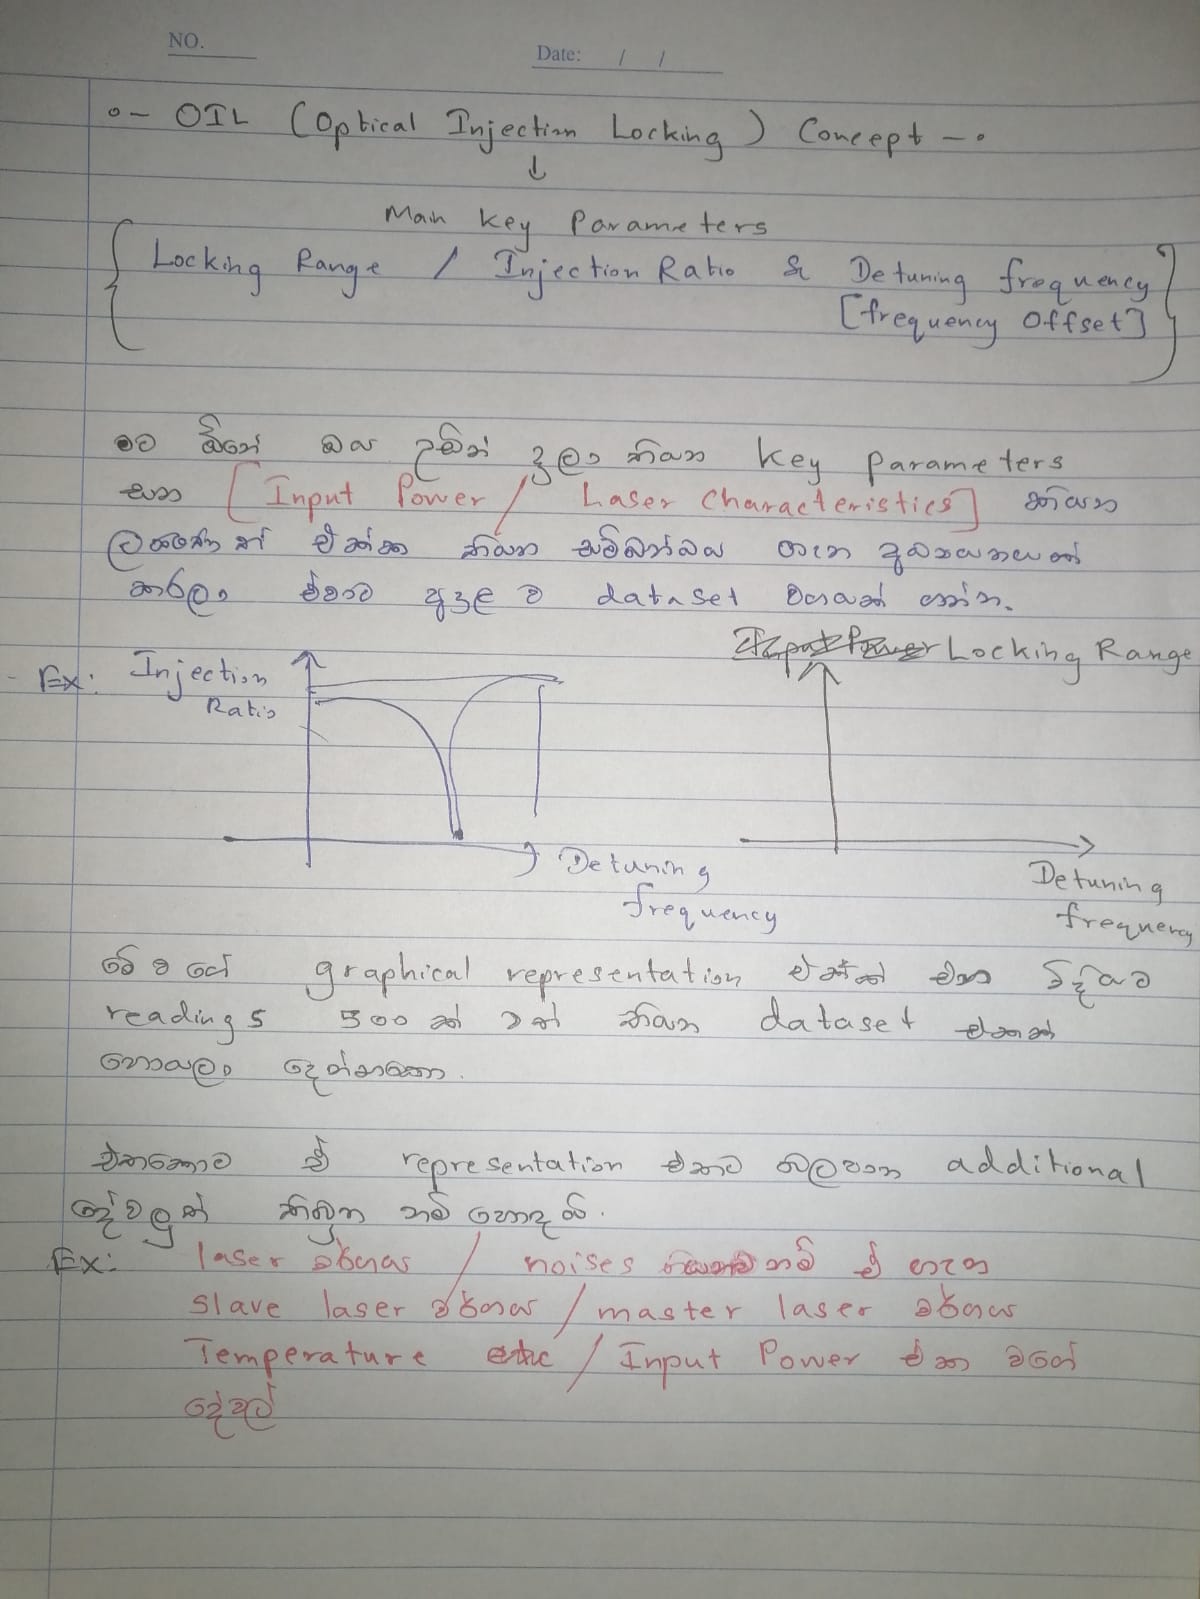 NO.
Date: / /
OIL (Optical Injection Locking) Concept
↓
Main Key Parameters
Locking Range / Injection Ratio & Detuning frequency
[frequency Offset]
මට ඕනේ ඔය උඩින් දාලා තියන key parameters
සහ [Input Power / Laser Characteristics] කියන
ලක්ෂණත් එක්ක තියන සම්බන්ධය ගැන අධ්‍යයනයක්
කරලා ඒවාට අදාළ ව dataset එකක් ගන්න.
Ex: Injection Ratio
Detuning frequency
Locking Range
Detuning frequency
මේ වගේ graphical representation එකක් එන විදියට
readings 500ක් වත් තියන dataset එකක්
හොයලා දෙන්නකො.
එතකොට ඒ representation එකට බලපාන additional
දේවලුත් තිබුන නම් හොඳයි.
Ex: laser වර්ගය / noises තියනවනම් ඒ ගැන
slave laser වර්ගය / master laser වර්ගය
Temperature etc / Input Power එක වගේ
දේවල්